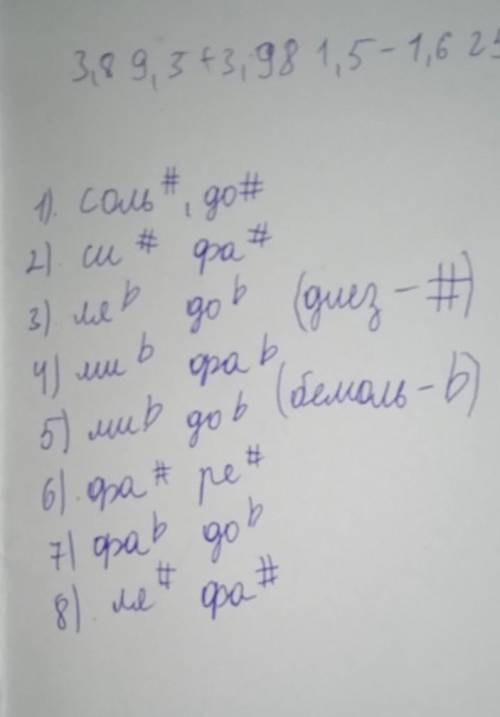 3,8 9,3+3,98 1,5-1,6 25
1). соль#, до#
2) си # фа#
3) ля b до b (диез - #)
4) ми b фа b
5) ми b до b (бемоль - b)
6) фа # ре #
7) фа b до b
8) ля # фа #